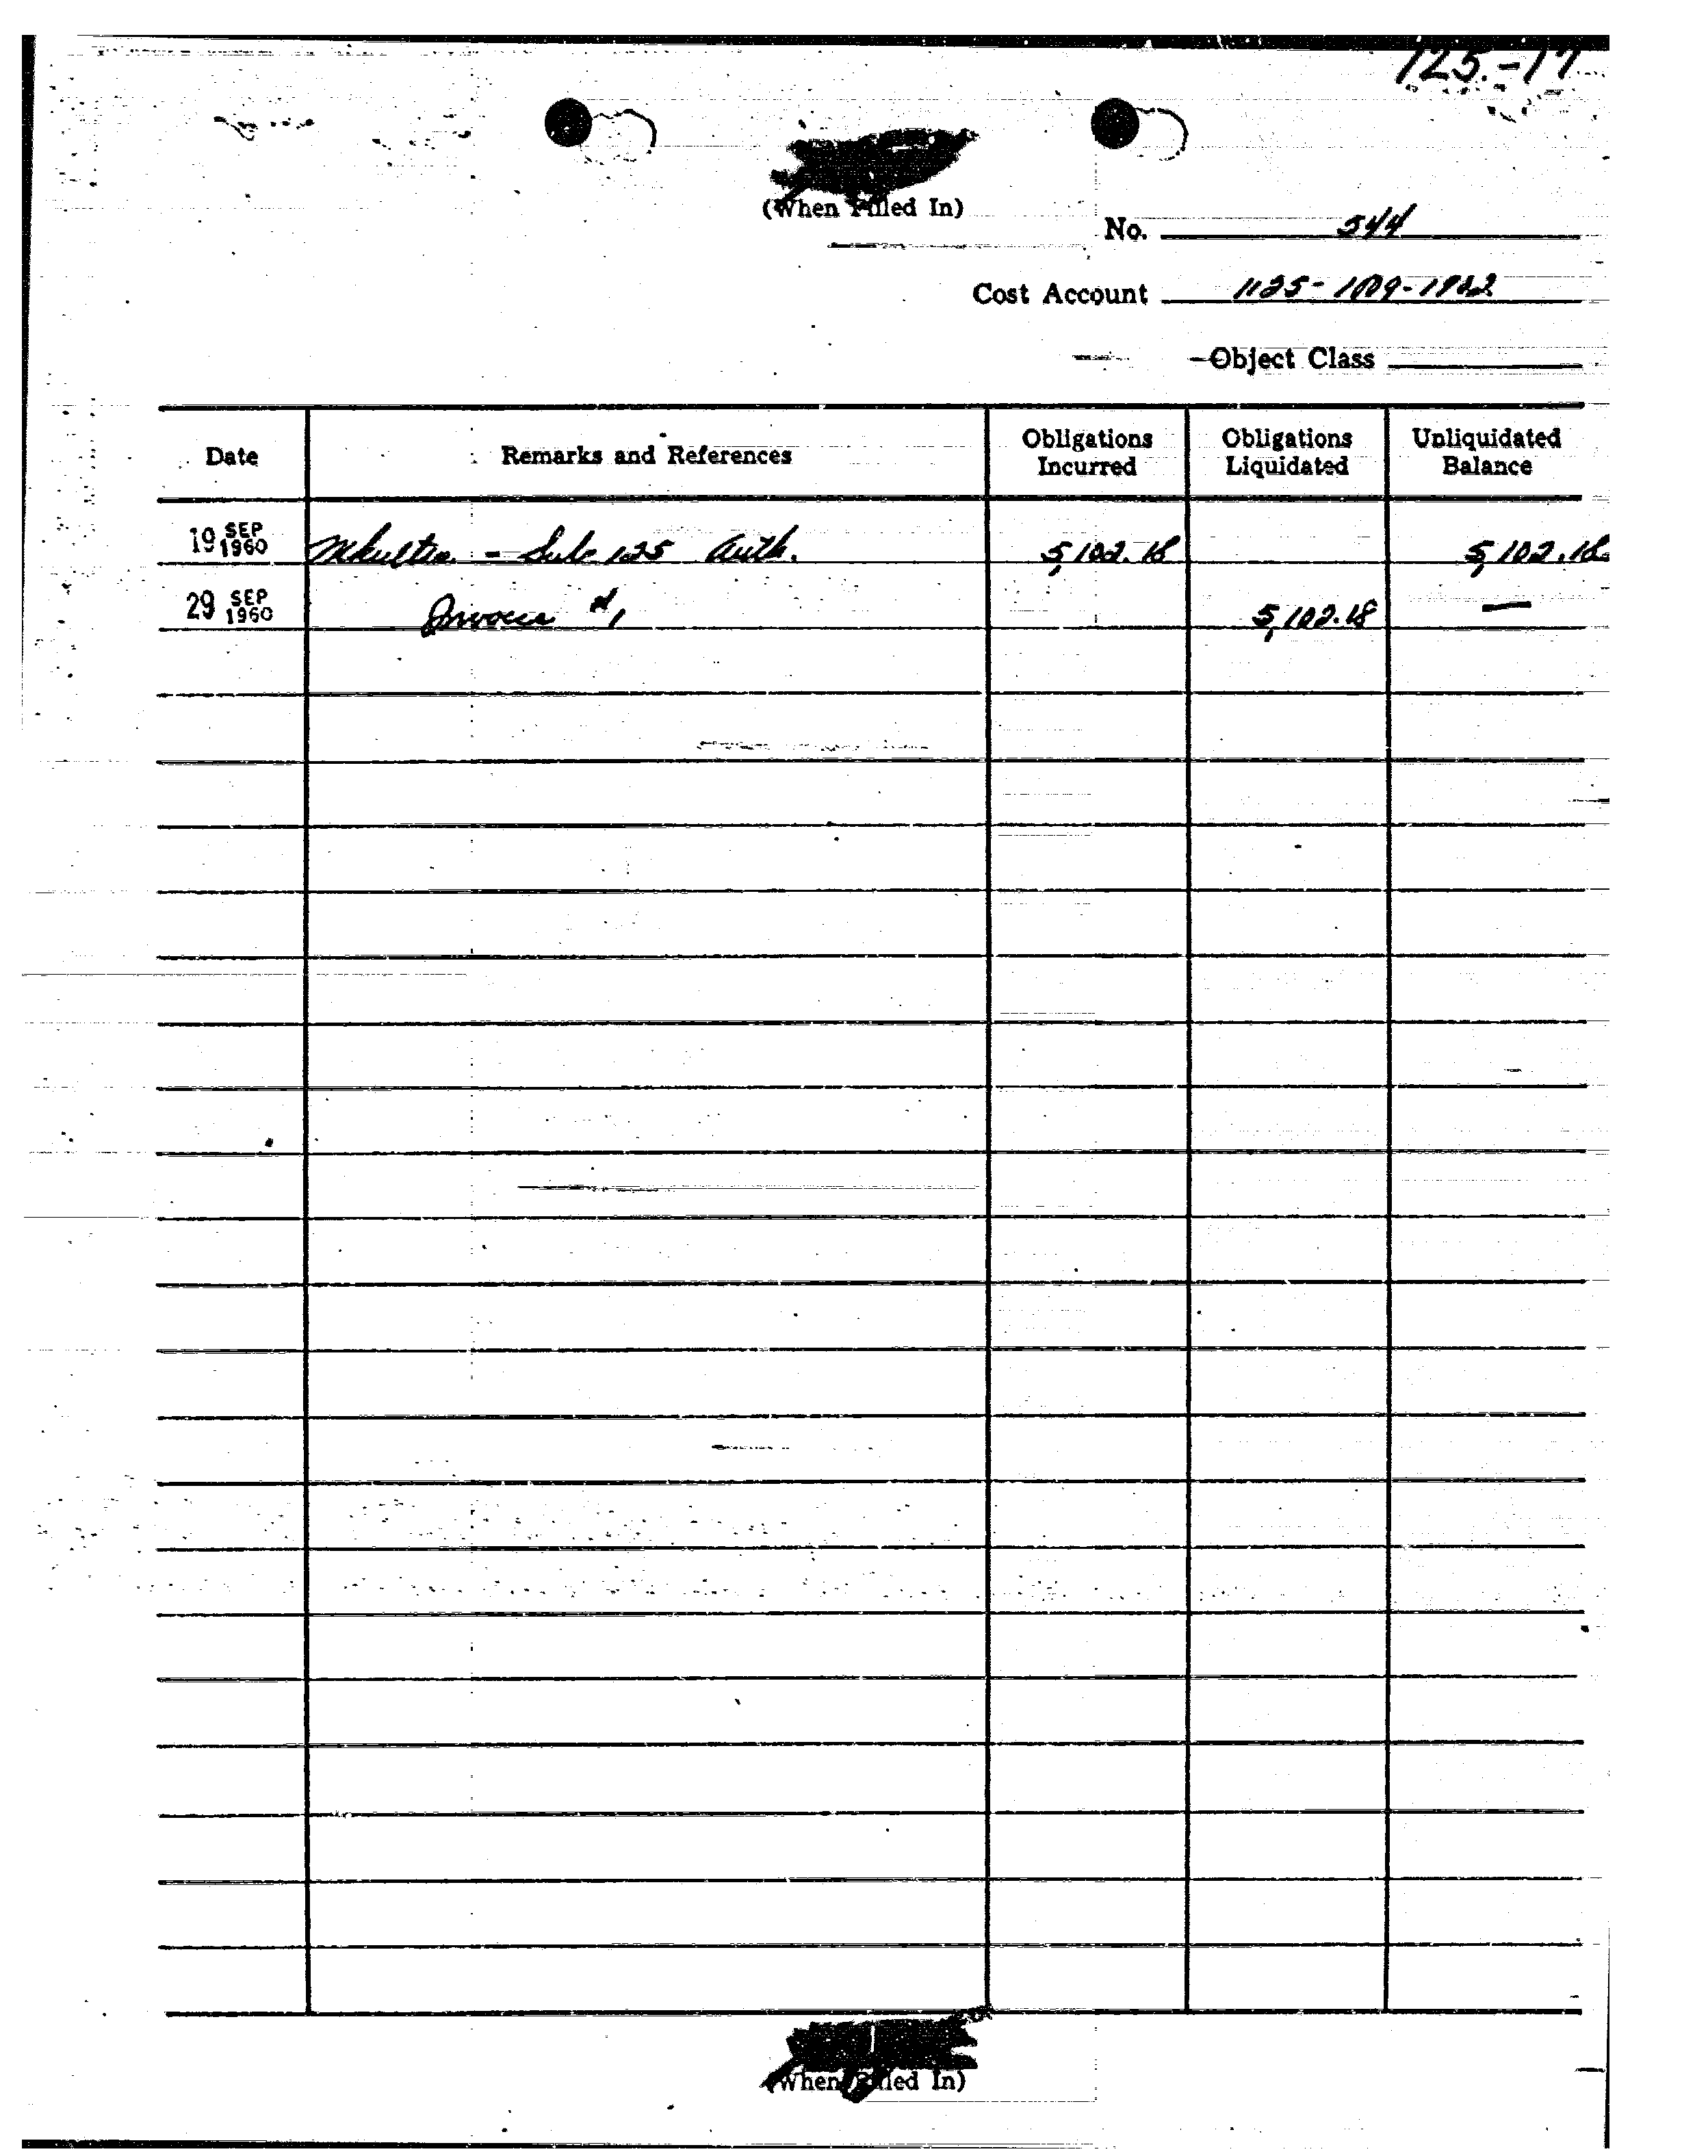 125-17
(When Filled In)
No. 544
Cost Account 1125-1009-1902
Object Class
Date Remarks and References Obligations Incurred Obligations Liquidated Unliquidated Balance
19 SEP 1960 Mkultra - Sub 125 Auth. 5,102.18 5,102.18
29 SEP 1960 Invoice #1 5,102.18 —
(When Filled In)